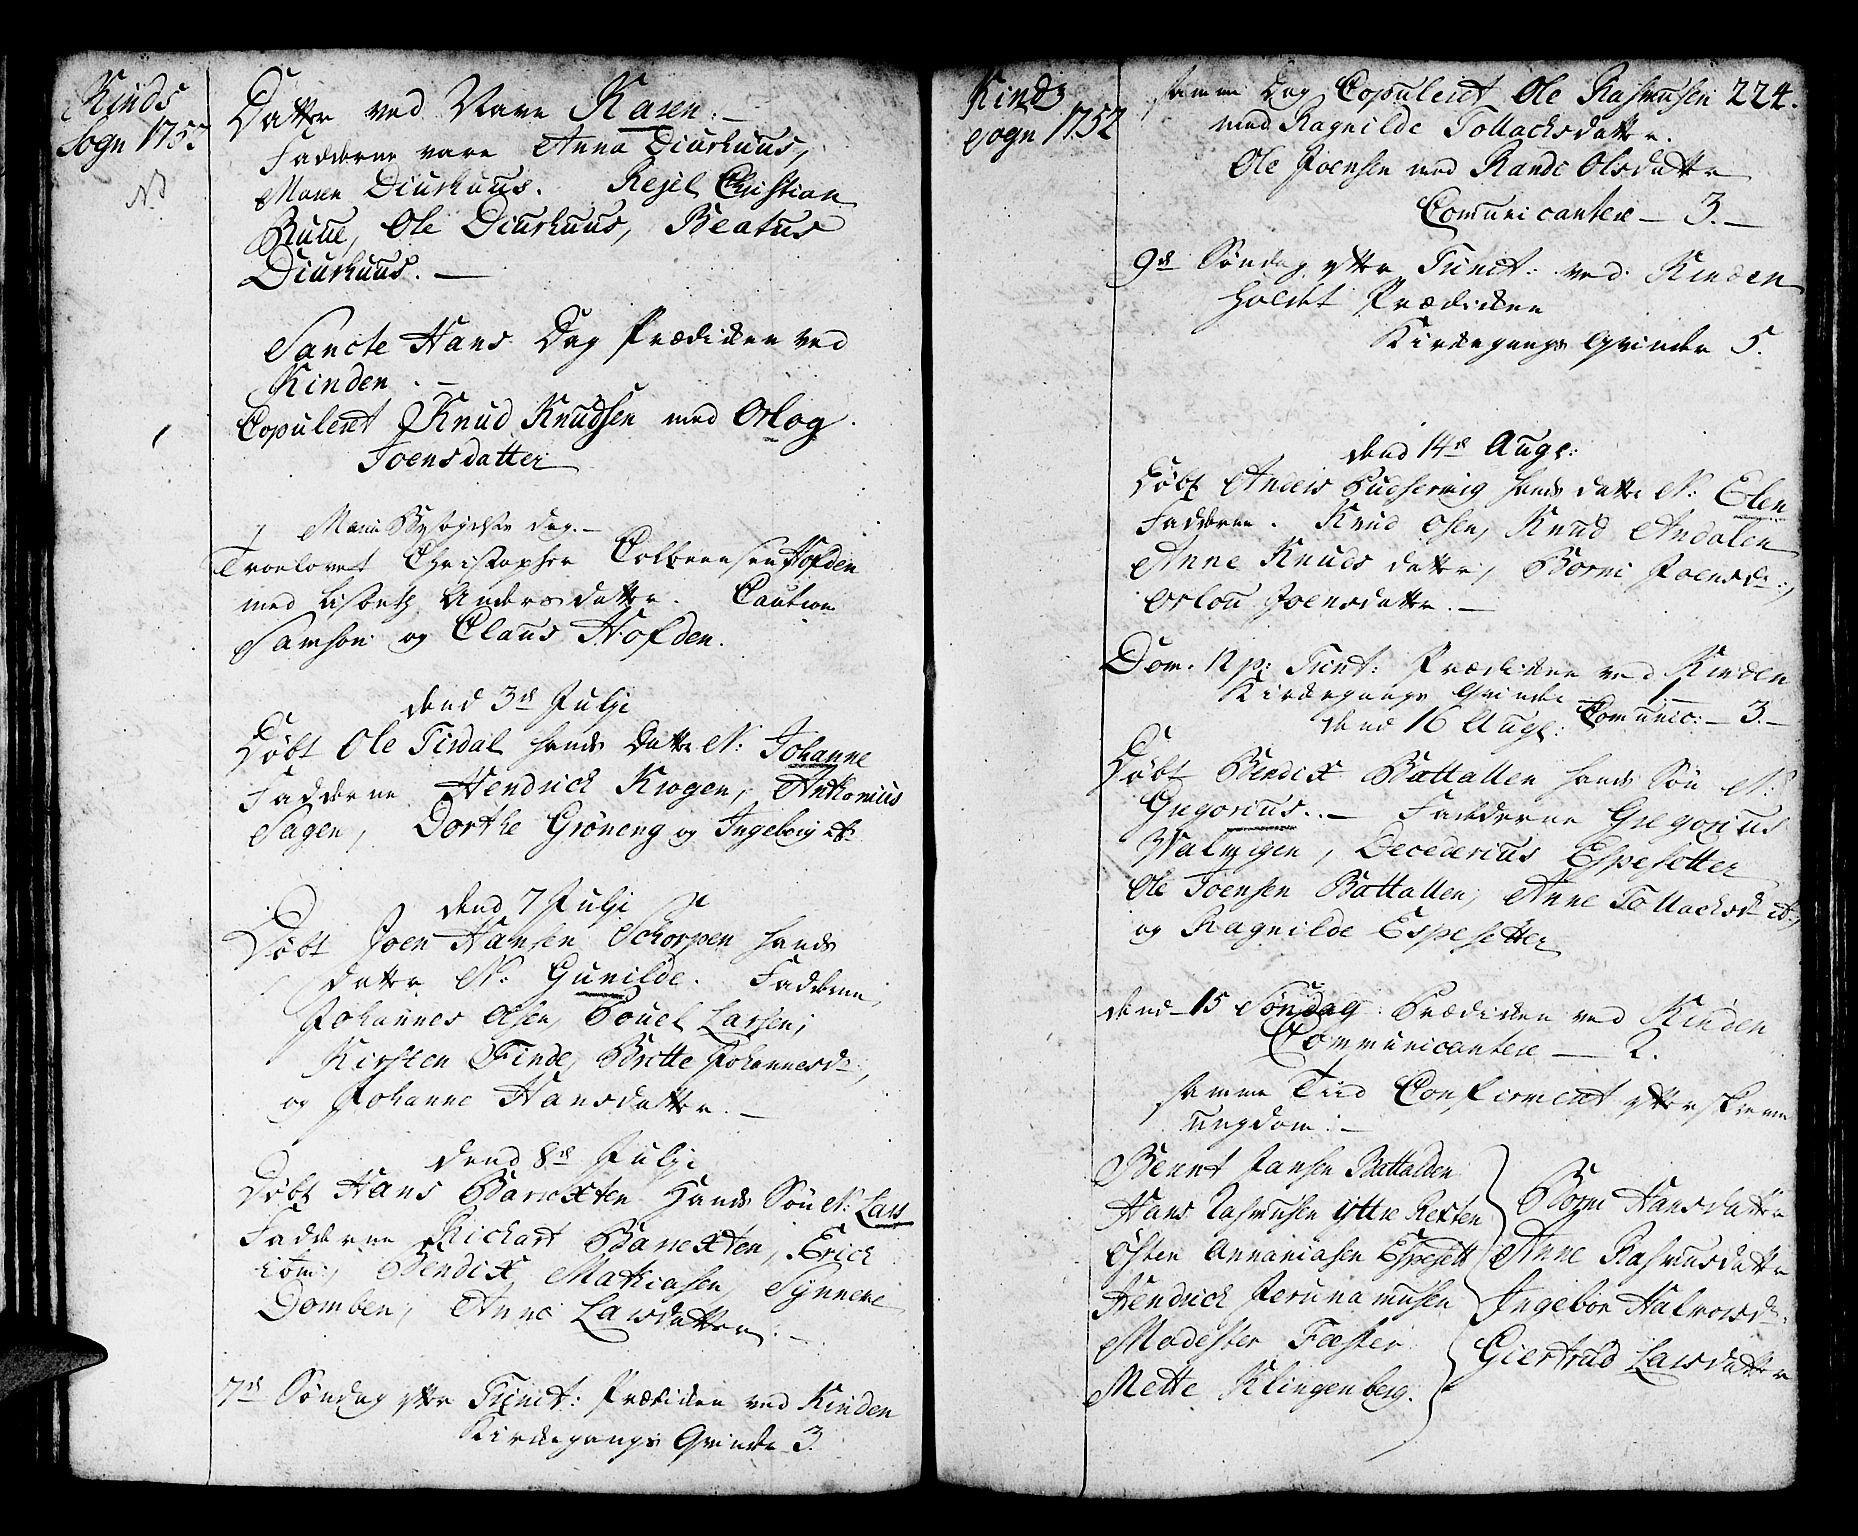 Kinds
Sogn 1752
NB
Datter ved Navn Karen. —
Fadderne vare Anna Diurhuus,
Maren Diurhuus. Rejel Christian
Buue, Ole Diurhuus, Beatus
Diurhuus. —
Sancte Hans Dag Prædiken ved
Kinden. —
Copuleret Knud Knudsen med Orlog
Joensdatter
Mariæ Besøgelse Dag. —
Troelovet Christopher Colbeensen Hofden
med Lisbeth Anders datter. Caution
Samson og Claus Hofden.
dend 3die Julji
Døbt Ole Tirdal hands Datter N: Johanne
Fadderne Hendrick Krogen, Anthonius
Sagen, Dorthe Grøneng og Ingeborg ib:
dend 7 Julji
Døbt Joen Hansen Schorpen hands
datter N: Gunilde. Fadderne,
Johannes Olsen, Povel Larsen,
Kirsten Finde, Britte Johannesd:,
og Johanne Hansdatter. —
dend 8de Julji
Døbt Hans Barexten Hands Søn N: Lars
Fadderne Richart Barexten, Erich
ibm:, Bendix Mathiasen, Synneve
Domben, Anne Larsdatter. —
7de Søndag efter Trinit: Prædiken ved Kinden
Kirkegangs Qvinder 3.
Kinds
Sogn 1752
samme Dag Copuleret Ole Rasmusen 224.
med Ragnilde Tollachsdatter.
Ole Joensen med Rande Olsdatter
Comunicantere — 3. —
9de Søndag efter Trinit: ved Kinden
holdt Prædiken
Kirkegangs Qvinder 5.
dend 14de Aug:
Døbt Anders Hudsevig hands datter N: Elen
Fadderne. Knud Osen, Knud Andalen
Anne Knuds datter, Borni Joensd:,
Orlou Joensdatter. —
Dom. 12 p: Trinit: Prædiken ved Kinden
Kirkegangs Qvinde 1 —
dend 16 Aug: Comunic: — 3. —
Døbt Bendix Battallen hands Søn N:
Gregorius. — Fadderne Gregorius
Walvigen, Decederius Espesetter
Ole Joensen Battallen, Anne Tollachsd: ib:,
og Ragnilde Espesetter
dend 15 Søndag: Prædiken ved Kinden
Communicantere — 2.
samme Tiid Confirmeret efterskrevne
ungdom: —
Bernt Jansen Battalden
Hans Rasmusen Yttre Rexten
Østen Annaniasen Espesett
Hendrick Jerunamusen
Modester Fæster
Mette Klingenberg.
Borni Hansdatter
Anne Rasmusdatter
Ingebor Halvorsd:
Giertrud Larsdatter